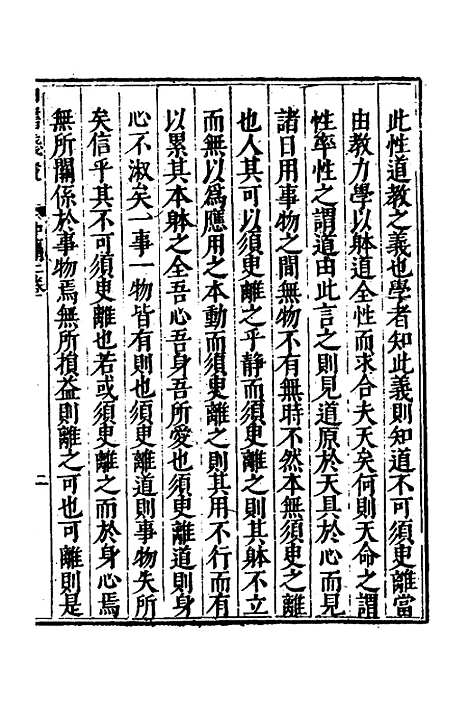 此性道教之義也學者知此義則知道不可須㬰離當
由教力學以躰道全性而求合夫天矣何則天命之謂
性率性之謂道由此言之則見道原於天具於心而見
諸日用事物之間無物不有無時不然本無須㬰之離
也人其可以須㬰離之乎静而須㬰離之則其躰不立
而無以爲應用之本動而須㬰離之則其用不行而有
以累其本躰之全吾心吾身吾所愛也須㬰離道則身
心不淑矣一事一物皆有則也須㬰離道則事物失所
矣信乎其不可須㬰離也若或須㬰離之而於身心焉
無所關係於事物焉無所損益則離之可也可離則是
二